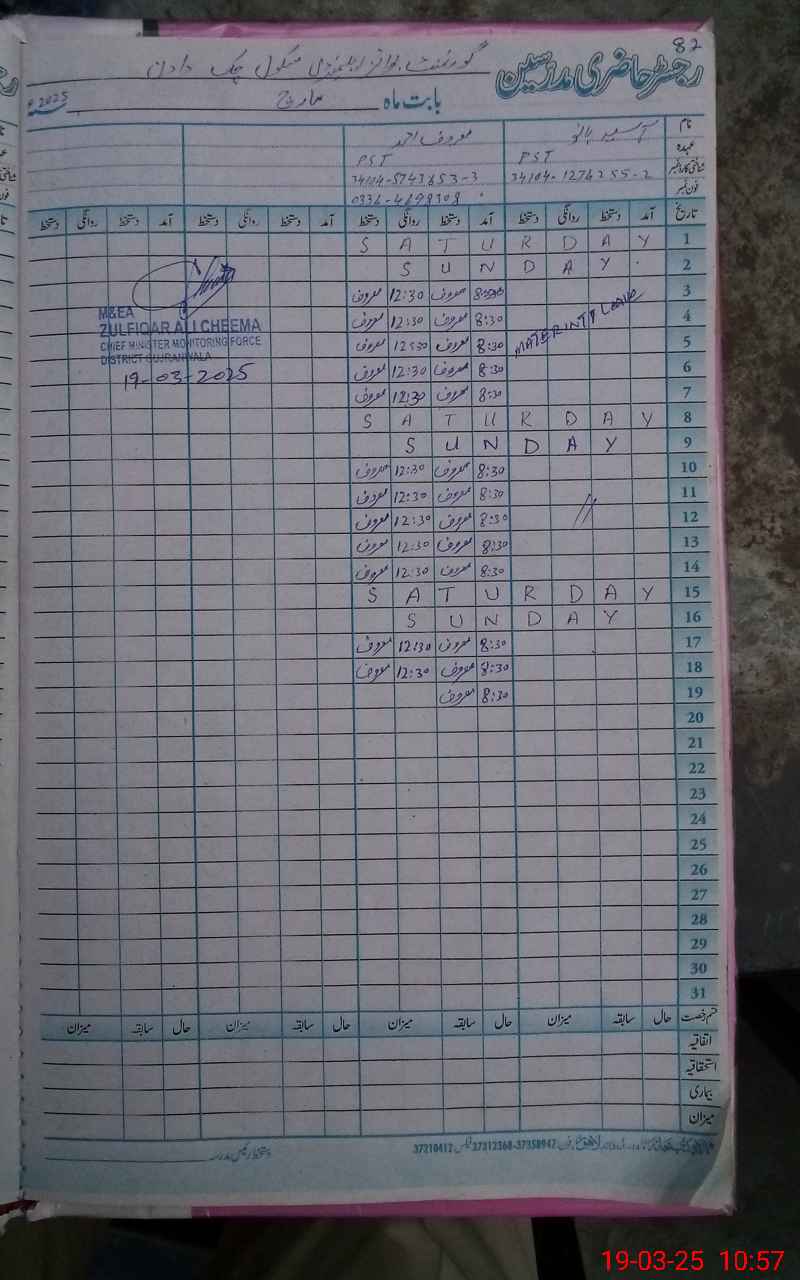 82
رجسٹر حاضری مدرسین گورنمنٹ بوائز ایلیمنٹری سکول چک دادن
بابت ماہ مارچ 2025ء
نام آسیہ بانو معروف احمد
عہدہ PST PST
شناختی کارڈ نمبر 34104-1274255-2 34104-5743653-3
فون نمبر
تاریخ آمد دستخط روانگی دستخط آمد دستخط روانگی دستخط آمد دستخط روانگی دستخط آمد دستخط روانگی دستخط
1 S A T U R D A Y
2 S U N D A Y
3 8:30 معروف 12:30 معروف
4 MATERINTY LEAVE 8:30 معروف 12:30 معروف
5 8:30 معروف 12:30 معروف
6 8:30 معروف 12:30 معروف
7 8:30 معروف 12:30 معروف
8 S A T U R D A Y
9 S U N D A Y
10 8:30 معروف 12:30 معروف
11 8:30 معروف 12:30 معروف
12 // 8:30 معروف 12:30 معروف
13 8:30 معروف 12:30 معروف
14 8:30 معروف 12:30 معروف
15 S A T U R D A Y
16 S U N D A Y
17 8:30 معروف 12:30 معروف
18 8:30 معروف 12:30 معروف
19 8:30 معروف
20
21
22
23
24
25
26
27
28
29
30
31
M&EA
ZULFIQAR ALI CHEEMA
CHIEF MINISTER MONITORING FORCE
DISTRICT GUJRANWALA
19-03-2025
قسم رخصت حال سابقہ میزان حال سابقہ میزان حال سابقہ میزان حال سابقہ میزان
اتفاقیہ
استحقاقیہ
بیماری
میزان
دستخط رئیس مدرسہ
37312368-37358947 فیکس 37210412
19-03-25 10:57